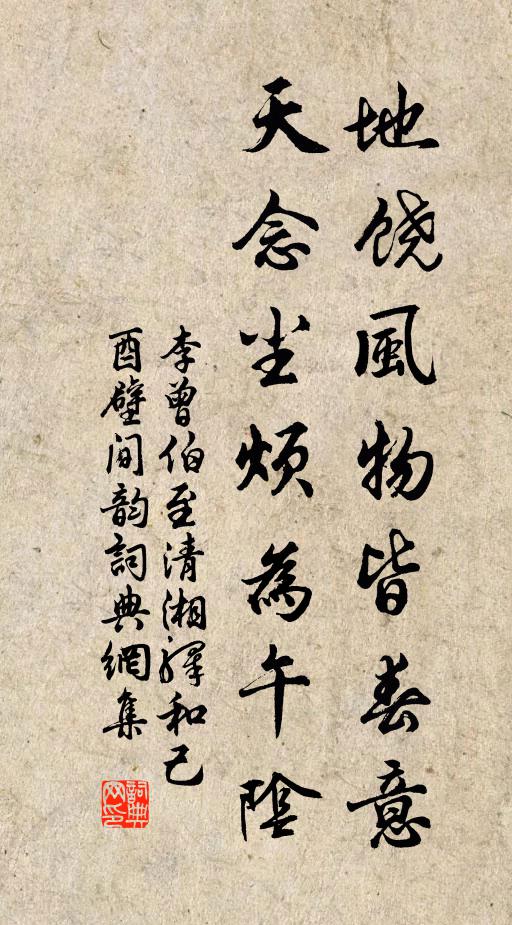 地饶風物皆春意
天念尘烦為午陰
李曾伯至清湘驛和己
酉壁间韵詞典網集
詞典网印